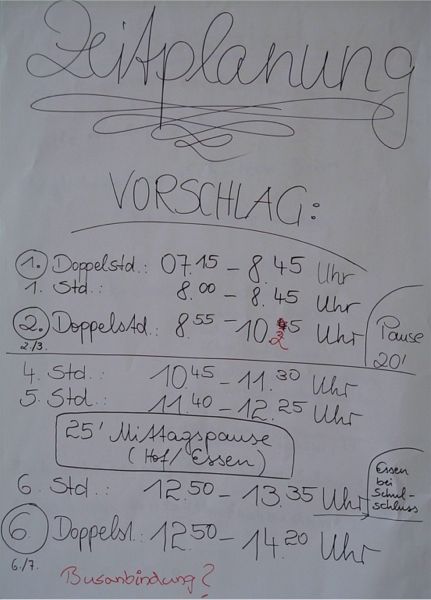 Zeitplanung
VORSCHLAG:
1. Doppelstd.: 07.15 - 8.45 Uhr
1. Std.: 8.00 - 8.45 Uhr
2. Doppelstd.: 8.55 - 10.25 Uhr
2./3.
Pause
20'
4. Std.: 10.45 - 11.30 Uhr
5. Std.: 11.40 - 12.25 Uhr
25' Mittagspause
(Hof/Essen)
6. Std.: 12.50 - 13.35 Uhr
Essen
bei
Schul-
schluss
6 Doppelst.: 12.50 - 14.20 Uhr
6./7.
Busanbindung?